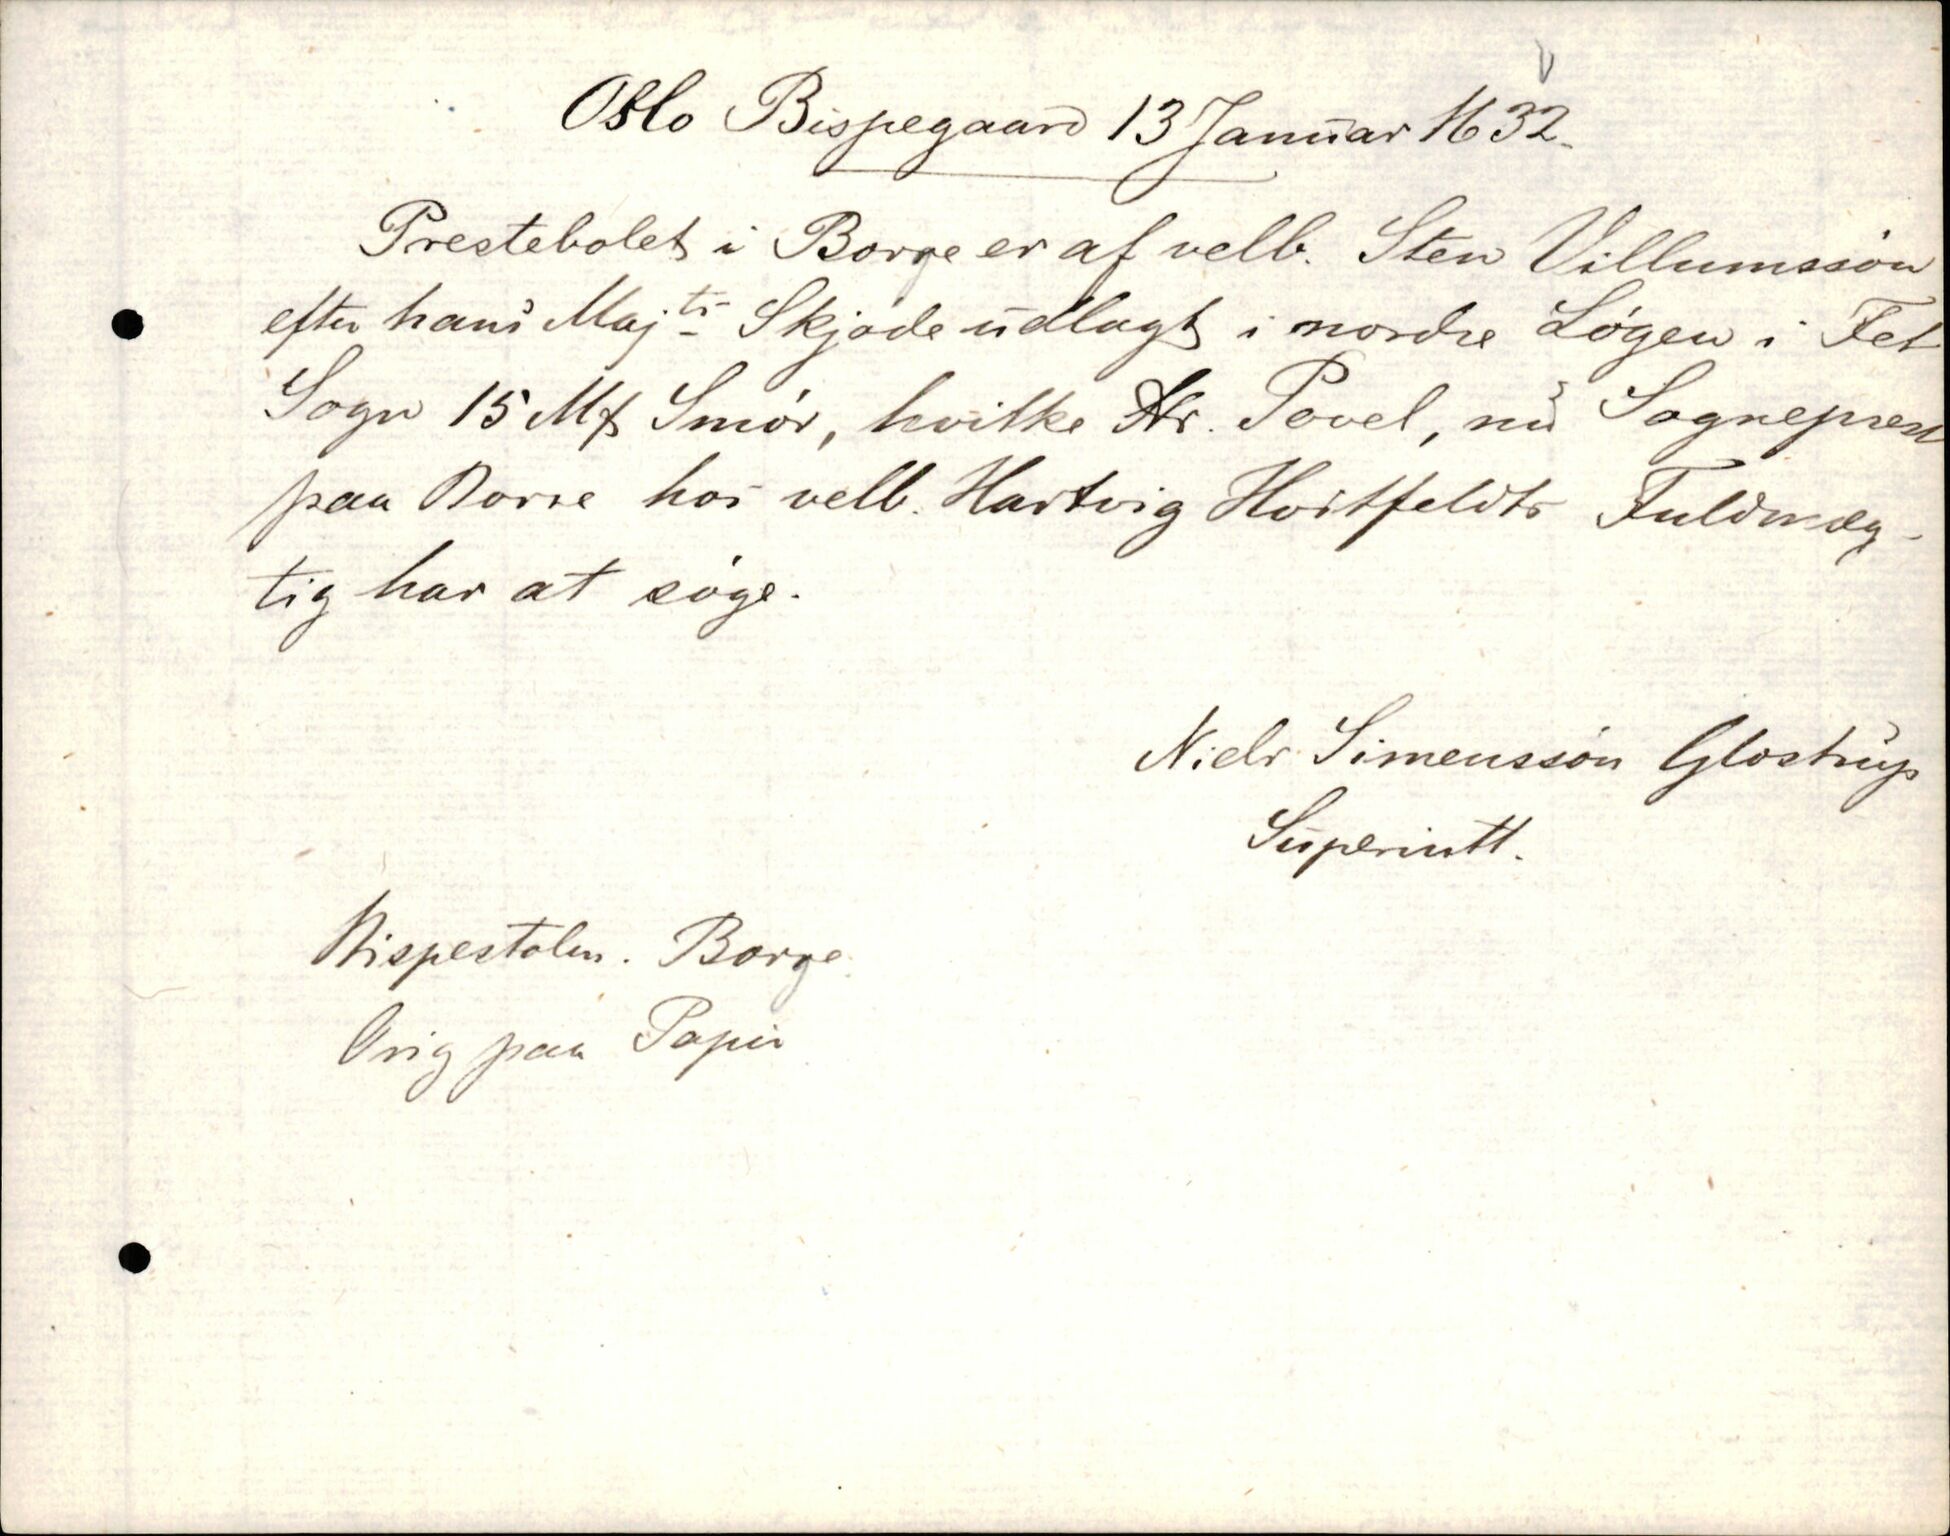 Oslo Bispegaard 13 Januar 1632.
Prestebolet i Borge er af velb. Sten Villumssøn
efter hans Maj ts Skjøde udlagt i nordre Løgen i Fet
Sogn 15 Mk Smør, hvilke Hr. Povel, nu Sogneprest
paa Borre hos velb. Hartvig Hvitfeldts Fuldmæg-
tig har at søge.
Niels Simenssøn Glostrup
Superintt.
Bispestolen. Borge
Orig paa Papir